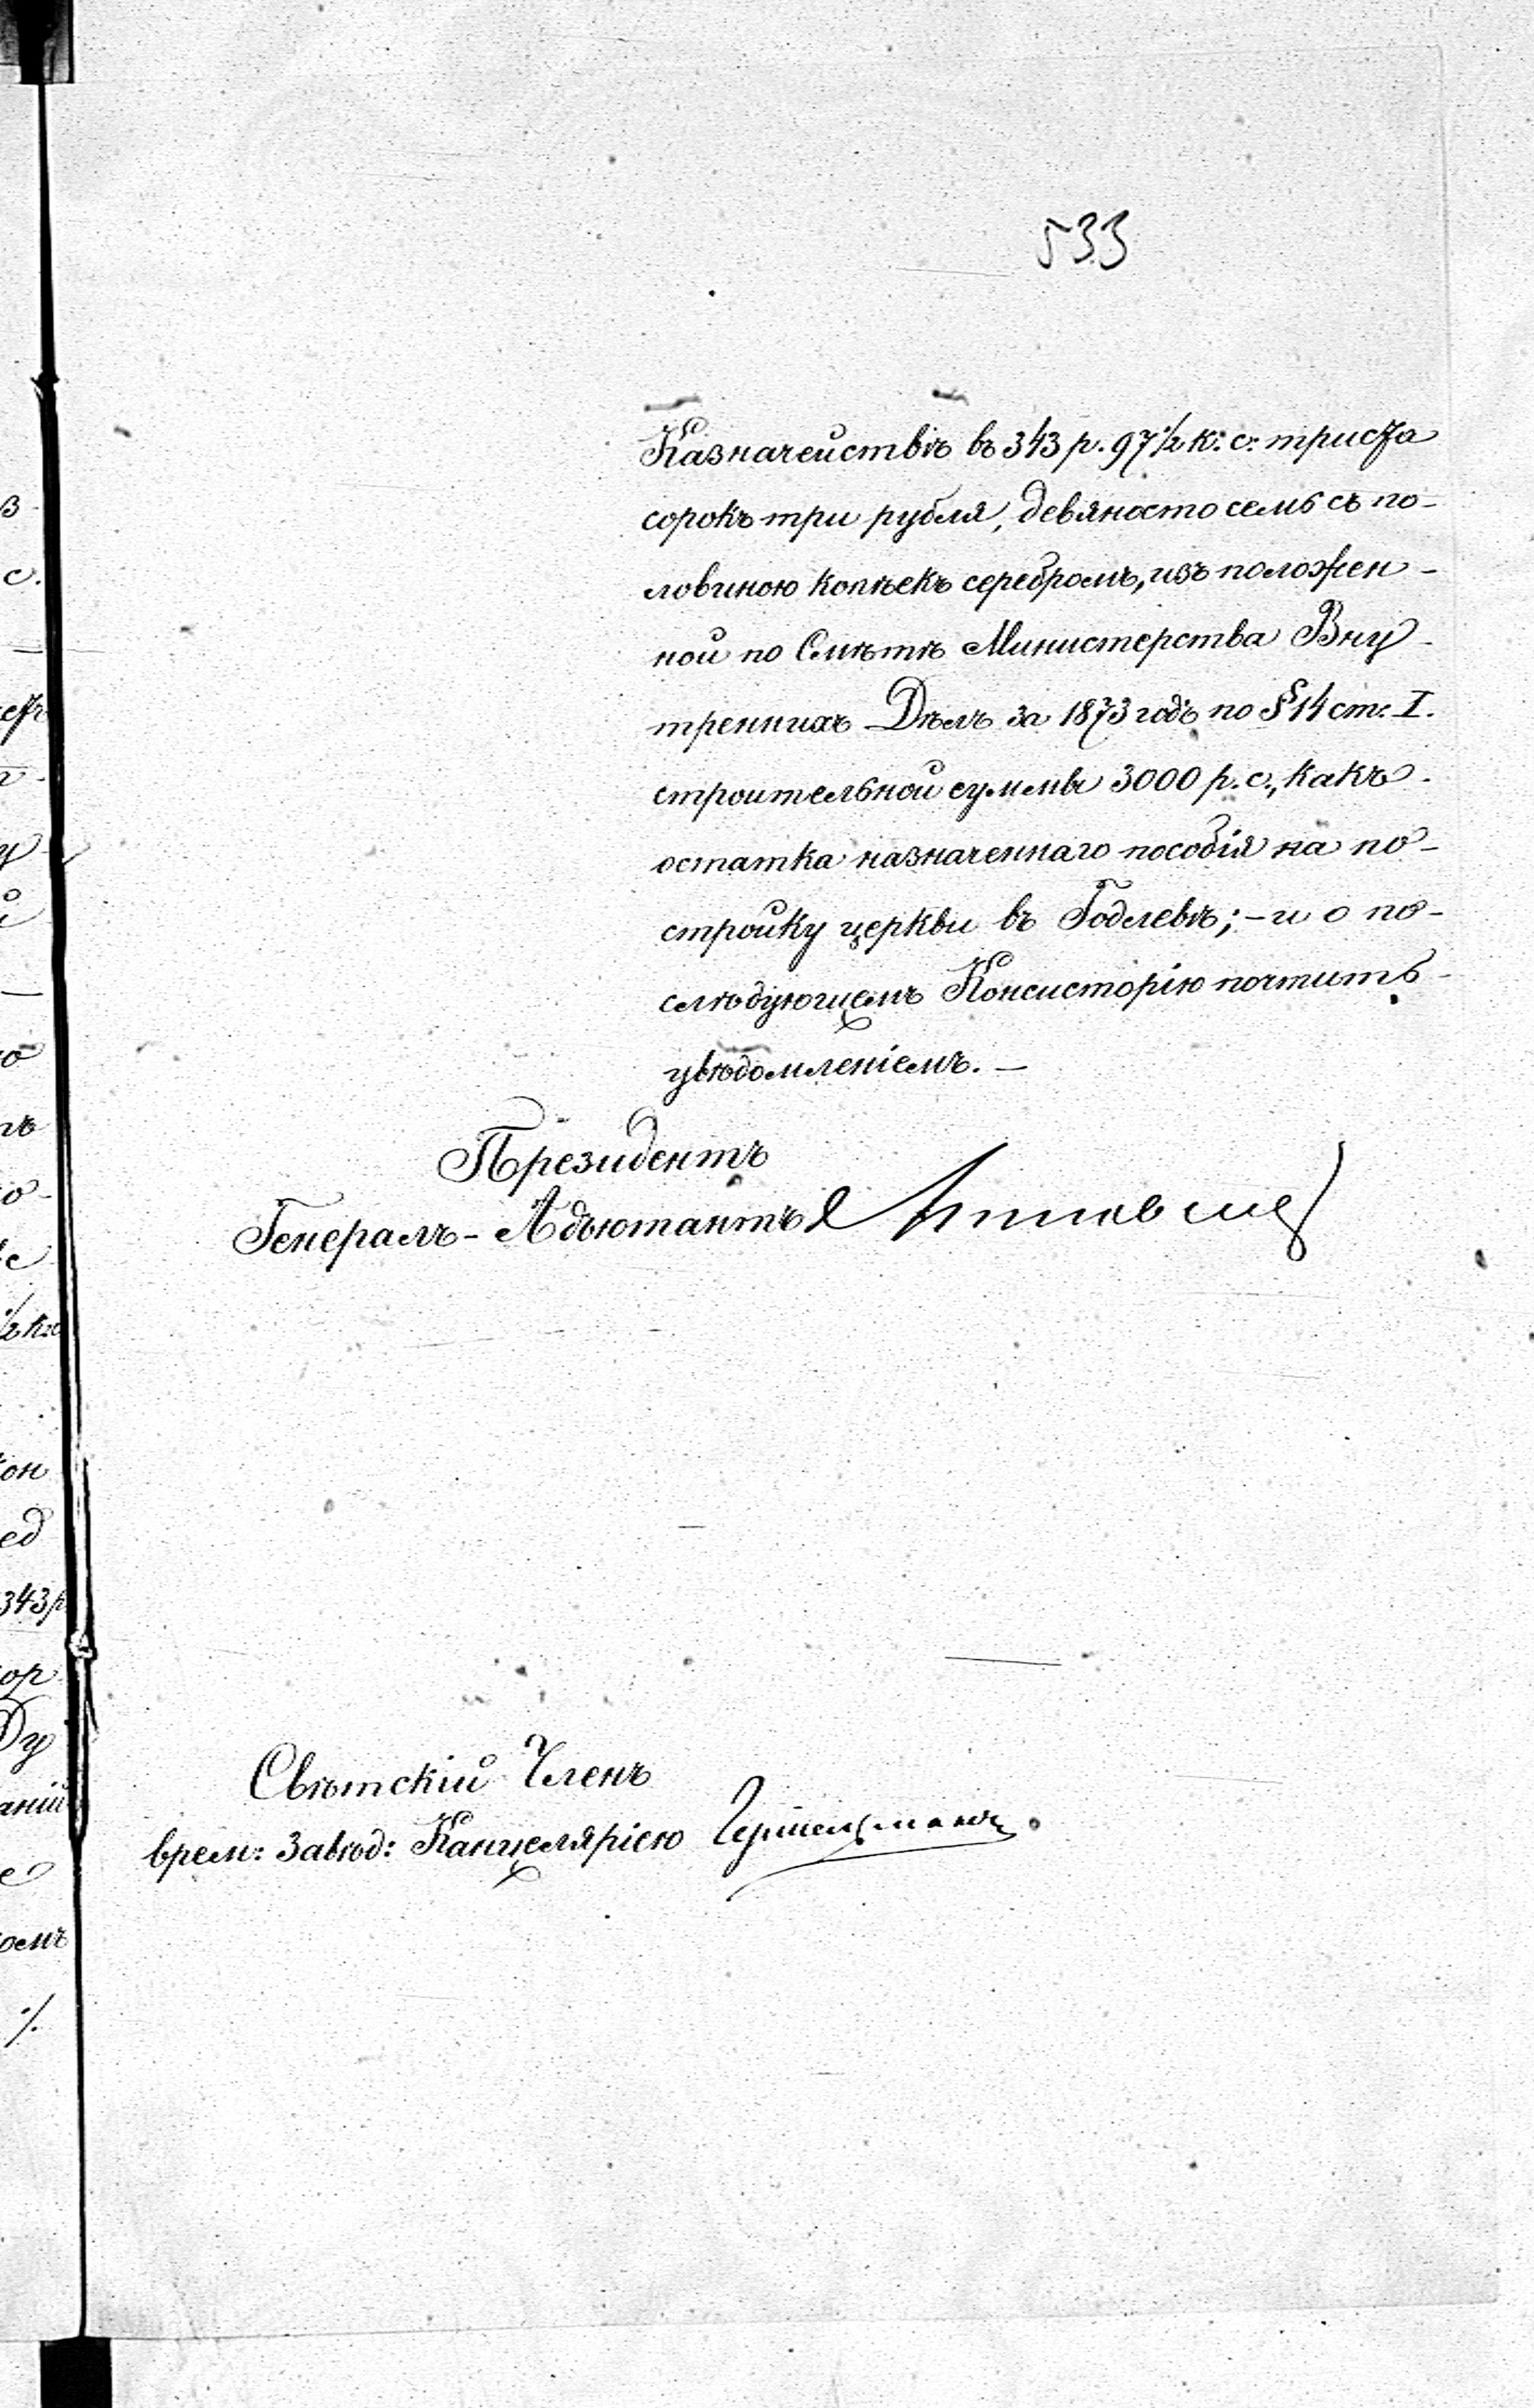 533
Казначействѣ въ 343 р. 97½ к: с: триста
сорокъ три рубля, девяносто семь съ по-
ловиною копѣекъ серебромъ, изъ положен-
ной по Смѣтѣ Министерства Вну-
треннихъ Дѣлъ за 1873 годъ по § 14 ст: I.
строительной суммы 3000 р. с., какъ
остатка назначеннаго пособія на по-
стройку церкви въ Годлевѣ; - и о по-
слѣдующемъ Консисторію почтить
увѣдомленіемъ. —
Президентъ
Генералъ-Адъютантъ
Свѣтскій Членъ
врем: Завѣд: Канцеляріею
с.
о
е
½ к:с
кон
ед
343 р
ор
Ду
аній
е
омъ